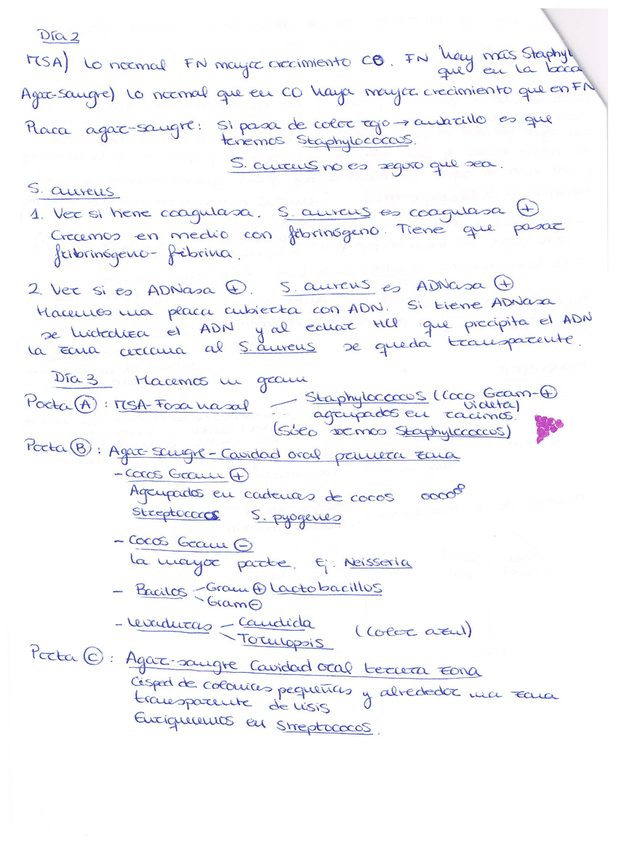 Día 2
MSA) Lo normal FN mayor crecimiento CO. FN hay más Staphyl
que en la boca
Agar-sangre) Lo normal que en CO haya mayor crecimiento que en FN
Placa agar-sangre: Si pasa de color rojo → amarillo es que
tenemos Staphylococcus.
S. aureus no es seguro que sea.
S. aureus
1. Ver si tiene coagulasa. S. aureus es coagulasa ⊕
Crecemos en medio con fibrinógeno. Tiene que pasar
fribrinógeno-fibrina.
2. Ver si es ADNasa ⊕. S. aureus es ADNasa ⊕
Hacemos una placa cubierta con ADN. Si tiene ADNasa
se hidroliza el ADN y al echar HCl que precipita el ADN
la zona cercana al S. aureus se queda transparente.
Día 3 Hacemos un gram
Porta Ⓐ: MSA-Fosa nasal - Staphylococcus (Coco Gram-⊕
violeta)
agrupados en racimos.
(Sólo vemos Staphylococcus)
Porta Ⓑ: Agar-sangre-Cavidad oral primera zona
- Cocos Gram ⊕
Agrupados en cadenas de cocos
Streptococos S. pyogenes
- Cocos Gram ⊖
La mayor parte. Ej: Neisseria
- Bacilos - Gram ⊕ Lactobacillus
- Gram ⊖
- Levaduras - Candida
- Torulopsis (Color azul)
Porta Ⓒ: Agar-sangre Cavidad oral tercera zona
Césped de colonias pequeñas y alrededor una zona
transparente de lisis
Enriquecemos en Streptococos.